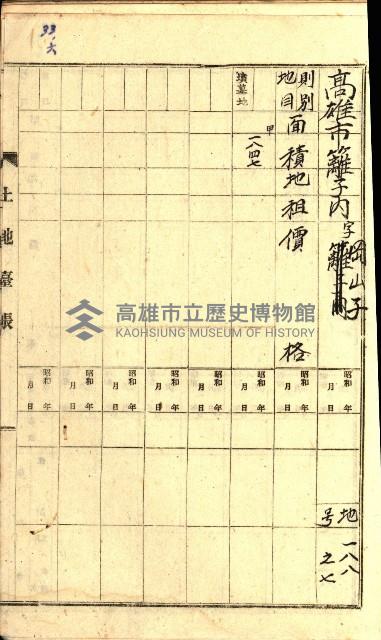 33.6
高雄市籬子內字崗山子
地號 一八八之七
則別
地目
面積
地租
價格
墳墓地
甲
一八四七
昭和 年 月 日
昭和 年 月 日
昭和 年 月 日
昭和 年 月 日
昭和 年 月 日
昭和 年 月 日
昭和 年 月 日
昭和 年 月 日
土地臺帳
高雄市立歷史博物館
KAOHSIUNG MUSEUM OF HISTORY